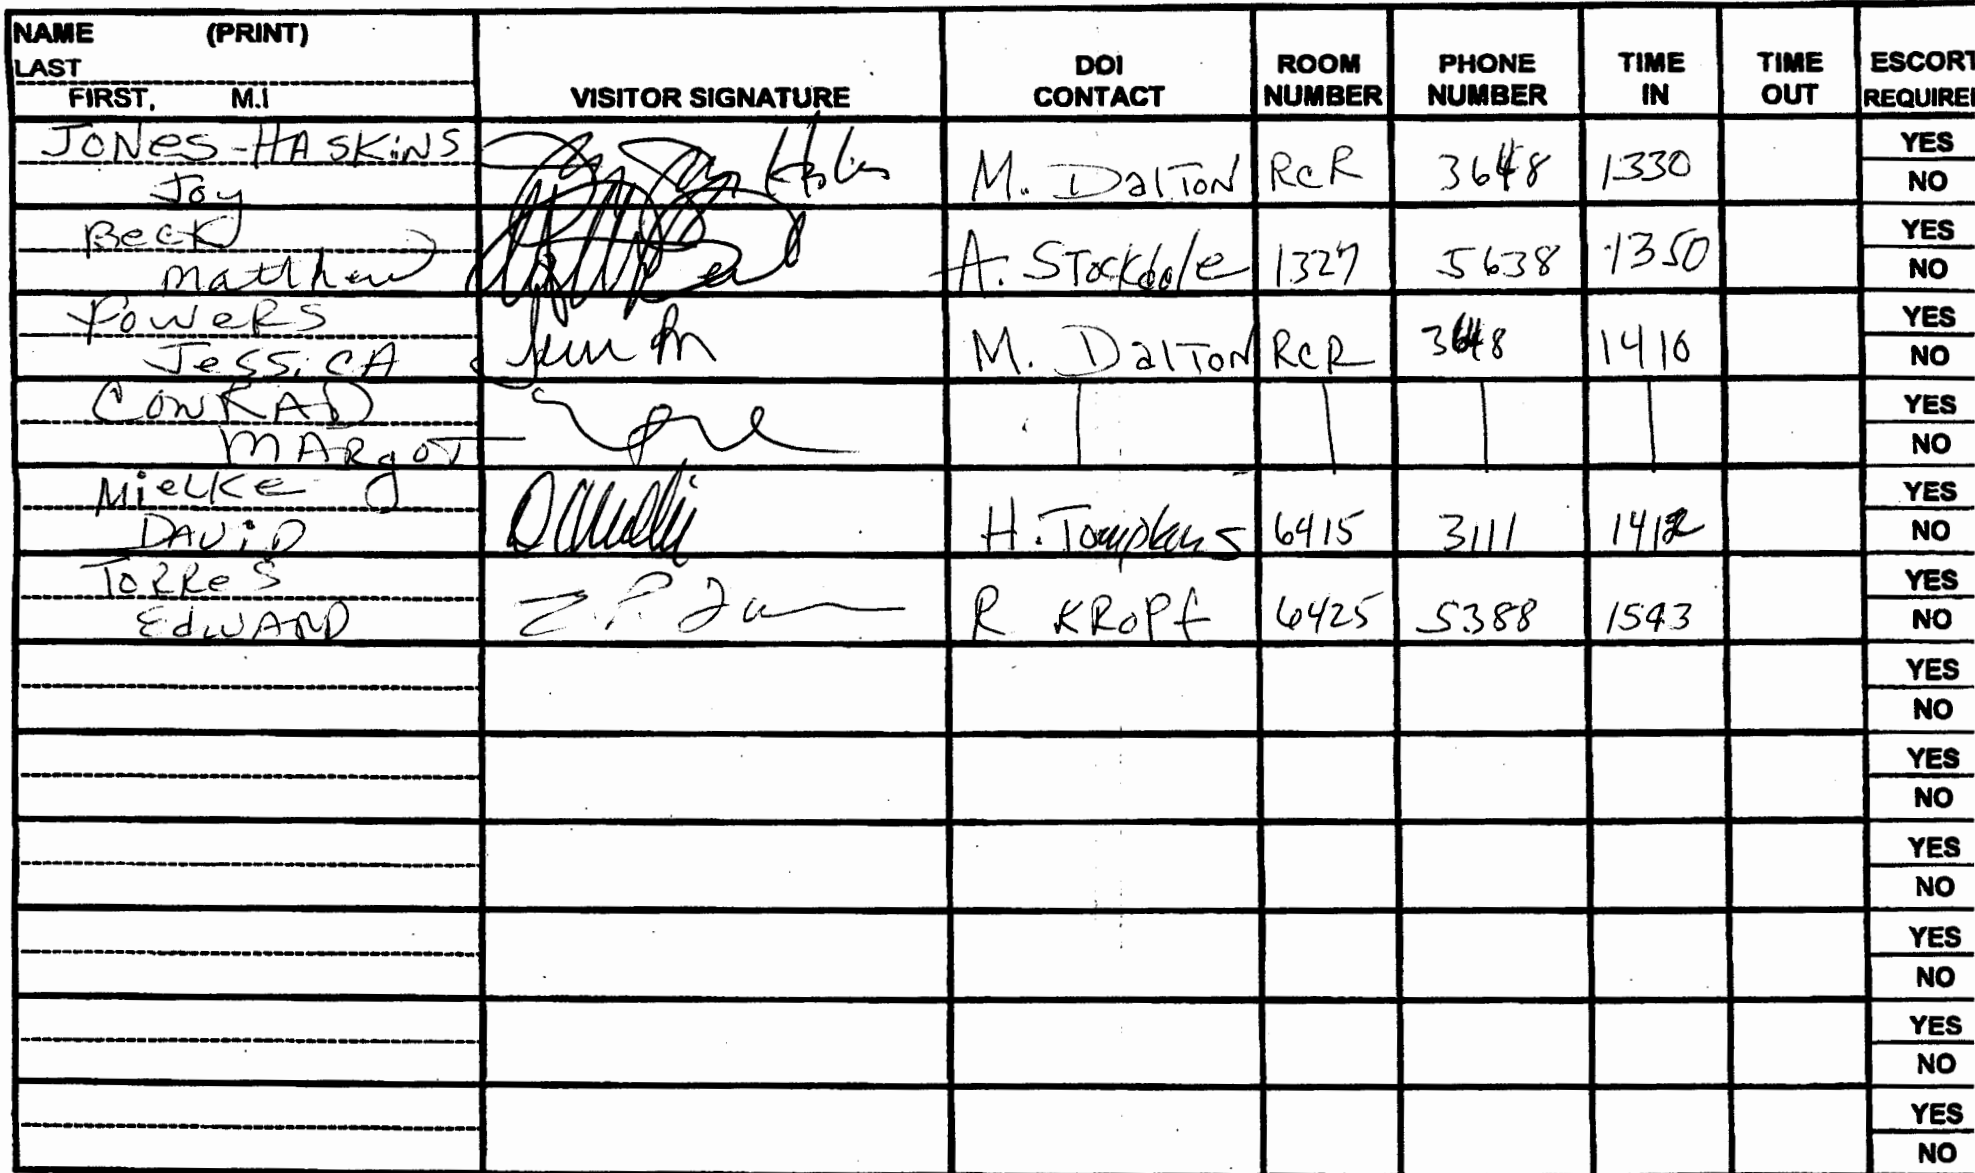 NAME (PRINT)
LAST
FIRST, M.I
VISITOR SIGNATURE
DOI CONTACT
ROOM NUMBER
PHONE NUMBER
TIME IN
TIME OUT
ESCORT REQUIRE
JONES-HASKINS
Joy
M. DalTON RCR 3648 1330
YES
NO
Beck
Matthew
A. STockdale 1327 5638 1350
YES
NO
Powers
JessiCA
M. DalTON RCR 3648 1410
YES
NO
CONRAD
MARgoT
YES
NO
MieLKe
DAViD
H. Tompkins 6415 3111 1412
YES
NO
ToRReS
EdWARD
R KRopf 6425 5388 1543
YES
NO
YES
NO
YES
NO
YES
NO
YES
NO
YES
NO
YES
NO